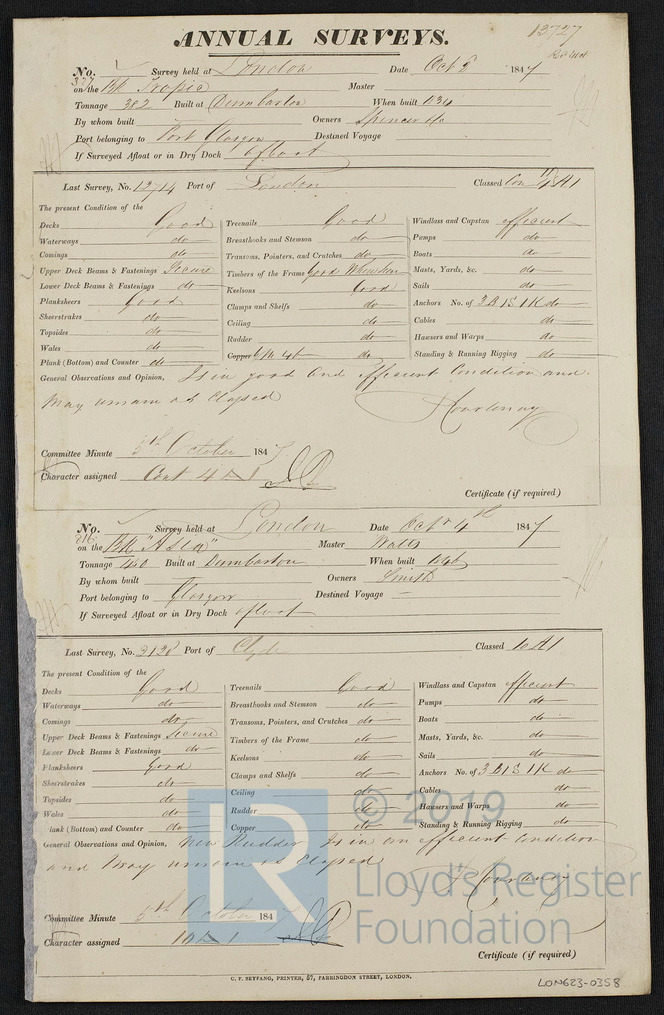 ANNUAL SURVEYS. 13727
No. Survey held at London Date Oct 1847
on the Bk Tropic Master
Tonnage 382 Built at Dumbarton When built 1834
By whom built Owners Spencer &c
Port belonging to Port Glasgow Destined Voyage
If Surveyed Afloat or in Dry Dock afloat
Last Survey, No. 12714 Port of London Classed A1
The present Condition of the
Decks Good Treenails Good Windlass and Capstan efficient
Waterways do Breasthooks and Stemson do Pumps do
Comings do Transoms, Pointers, and Crutches do Boats do
Upper Deck Beams & Fastenings Secure Timbers of the Frame Good Where seen Masts, Yards, &c. do
Lower Deck Beams & Fastenings do Keelsons Good Sails do
Planksheers Good Clamps and Shelfs do Anchors No. of 3 B 1 S 1 K do
Sheerstrakes do Ceiling do Cables do
Topsides do Rudder do Hawsers and Warps do
Wales do Copper do Standing & Running Rigging do
Plank (Bottom) and Counter do
General Observations and Opinion, Is in good and efficient Condition and
May remain as Classed
Courtenay
Committee Minute 5th October 1847
Character assigned Cont 4 A 1
Certificate (if required)
No. Survey held at London Date Octr 4th 1847
on the Bk "Asia" Master Watts
Tonnage 450 Built at Dumbarton When built 1846
By whom built Owners Smith
Port belonging to Glasgow Destined Voyage —
If Surveyed Afloat or in Dry Dock afloat
Last Survey, No. 3128 Port of Clyde Classed 10 A1
The present Condition of the
Decks Good Treenails Good Windlass and Capstan efficient
Waterways do Breasthooks and Stemson do Pumps do
Comings do Transoms, Pointers, and Crutches do Boats do
Upper Deck Beams & Fastenings Secure Timbers of the Frame do Masts, Yards, &c. do
Lower Deck Beams & Fastenings do Keelsons do Sails do
Planksheers Good Clamps and Shelfs do Anchors No. of 3 B 1 S 1 K do
Sheerstrakes do Ceiling do Cables do
Topsides do Rudder do Hawsers and Warps do
Wales do Copper do Standing & Running Rigging do
Plank (Bottom) and Counter do
General Observations and Opinion, New Rudder Is in an efficient Condition
and May remain as Classed
Courtenay
Committee Minute 5th October 1847
Character assigned 10 A 1
Certificate (if required)
C. F. SEYFANG, PRINTER, 57, FARRINGDON STREET, LONDON.
LON623-0358
LR © 2019
Lloyd's Register
Foundation